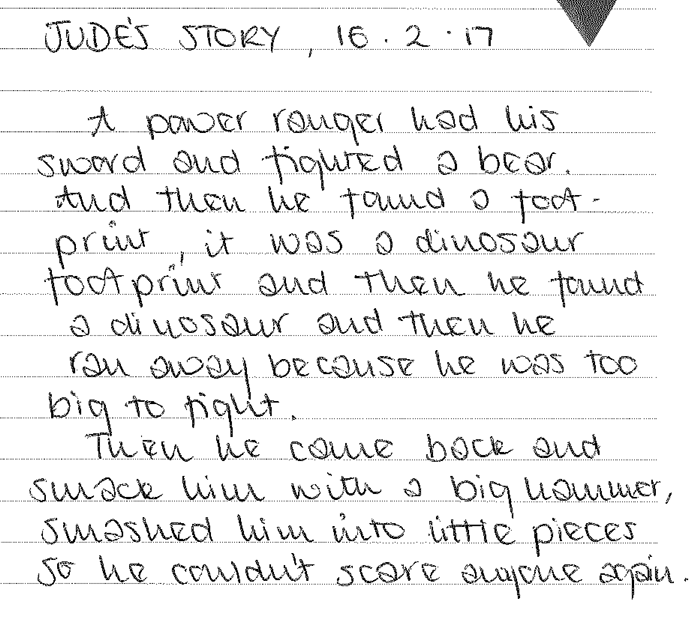 JUDE'S STORY, 16.2.17
A power ranger had his
sword and fighted a bear.
And then he found a foot-
print, it was a dinosaur
footprint and then he found
a dinosaur and then he
ran away because he was too
big to fight.
Then he came back and
smack him with a big hammer,
smashed him into little pieces
so he couldn't scare anyone again.